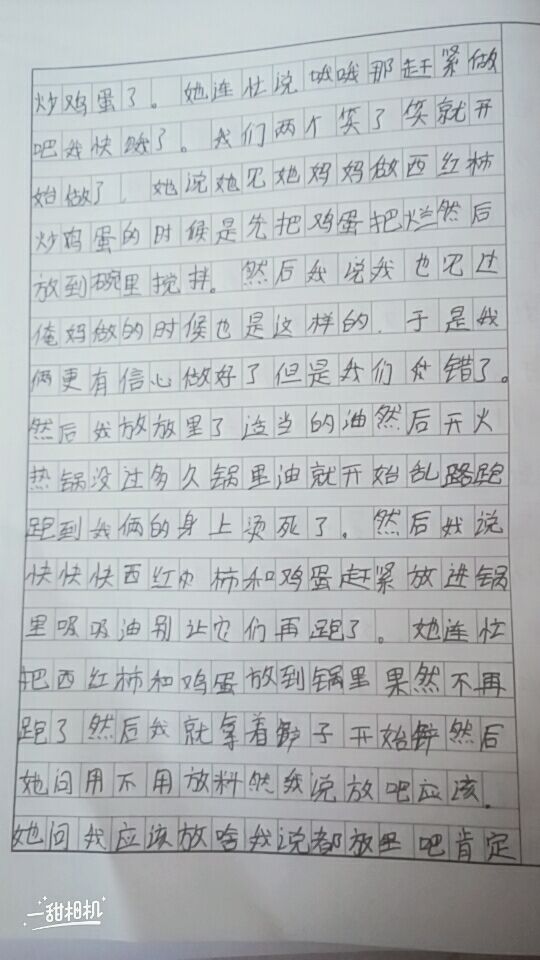 炒鸡蛋了。她连忙说哦哦那赶紧做
吧我快饿了。我们两个笑了笑就开
始做了，她说她见她妈妈做西红柿
炒鸡蛋的时候是先把鸡蛋把烂然后
放到碗里搅拌。然后我说我也见过
俺妈做的时候也是这样的．于是我
俩更有信心做好了但是我们错了。
然后我放放里了适当的油然后开火
热锅没过多久锅里油就开始乱路跑
跑到我俩的身上烫死了．然后我说
快快快西红柿和鸡蛋赶紧放进锅
里吸吸油别让它们再跑了。她连忙
把西红柿和鸡蛋放到锅里果然不再
跑了然后我就拿着子开始然后
她问用不用放料然我说放吧应该．
她问我应该放啥我说都放里吧肯定
一甜相机